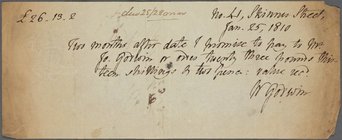 £26.13.2
No. 41, Skinner Street,
Jan. 25, 1810
Two months after date I promise to pay to Mr
Jo. Godwin or order twenty three pounds thir
teen shillings & two pence: value recd
W Godwin